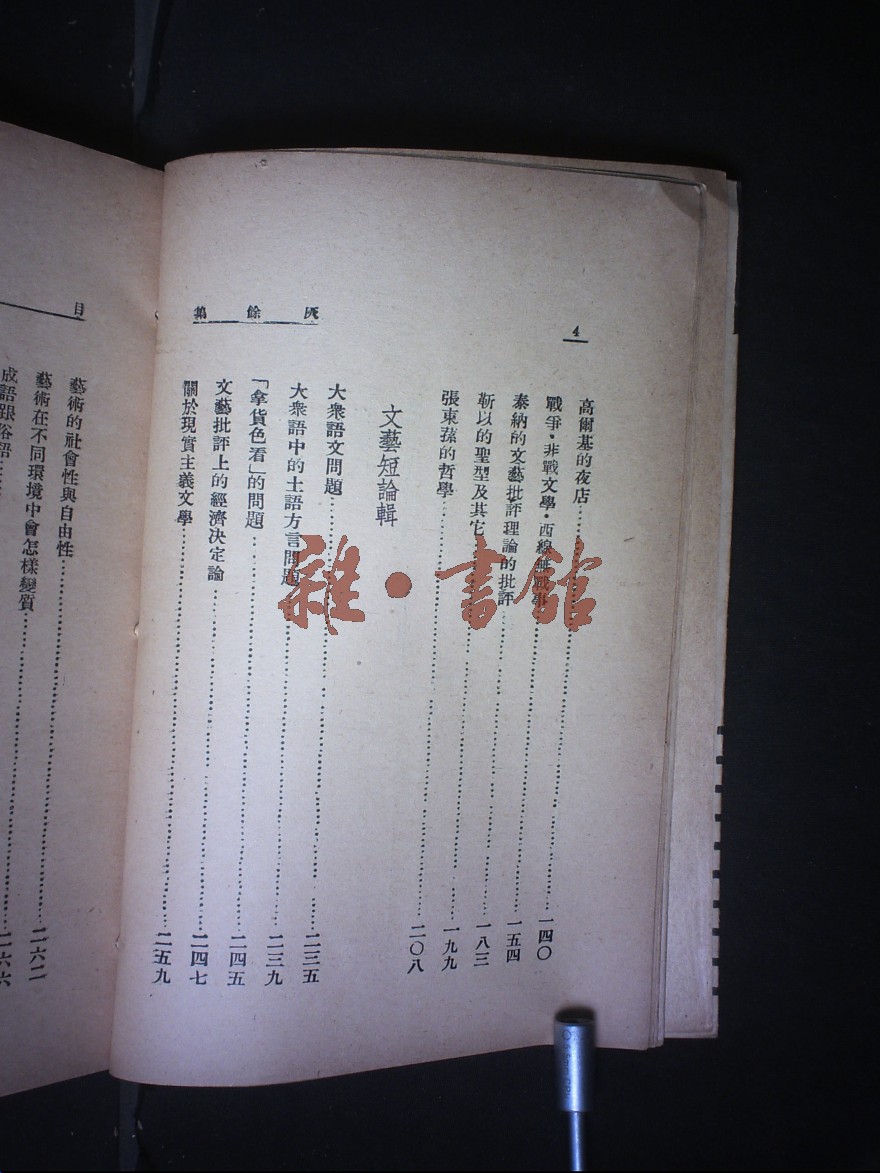 4
灰餘集
高爾基的夜店……一四〇
戰爭·非戰文學·西線無戰事……一五四
泰納的文藝批評理論的批評……一八三
靳以的聖型及其它……一九九
張東蓀的哲學……二〇八
文藝短論輯
大衆語文問題……二三五
大衆語中的土語方言問題……二三九
「拿貨色看」的問題……二四五
文藝批評上的經濟決定論……二四七
關於現實主義文學……二五九
目
藝術的社會性與自由性……二六二
藝術在不同環境中會怎樣變質……二六六
成語跟俗語
雜·書館